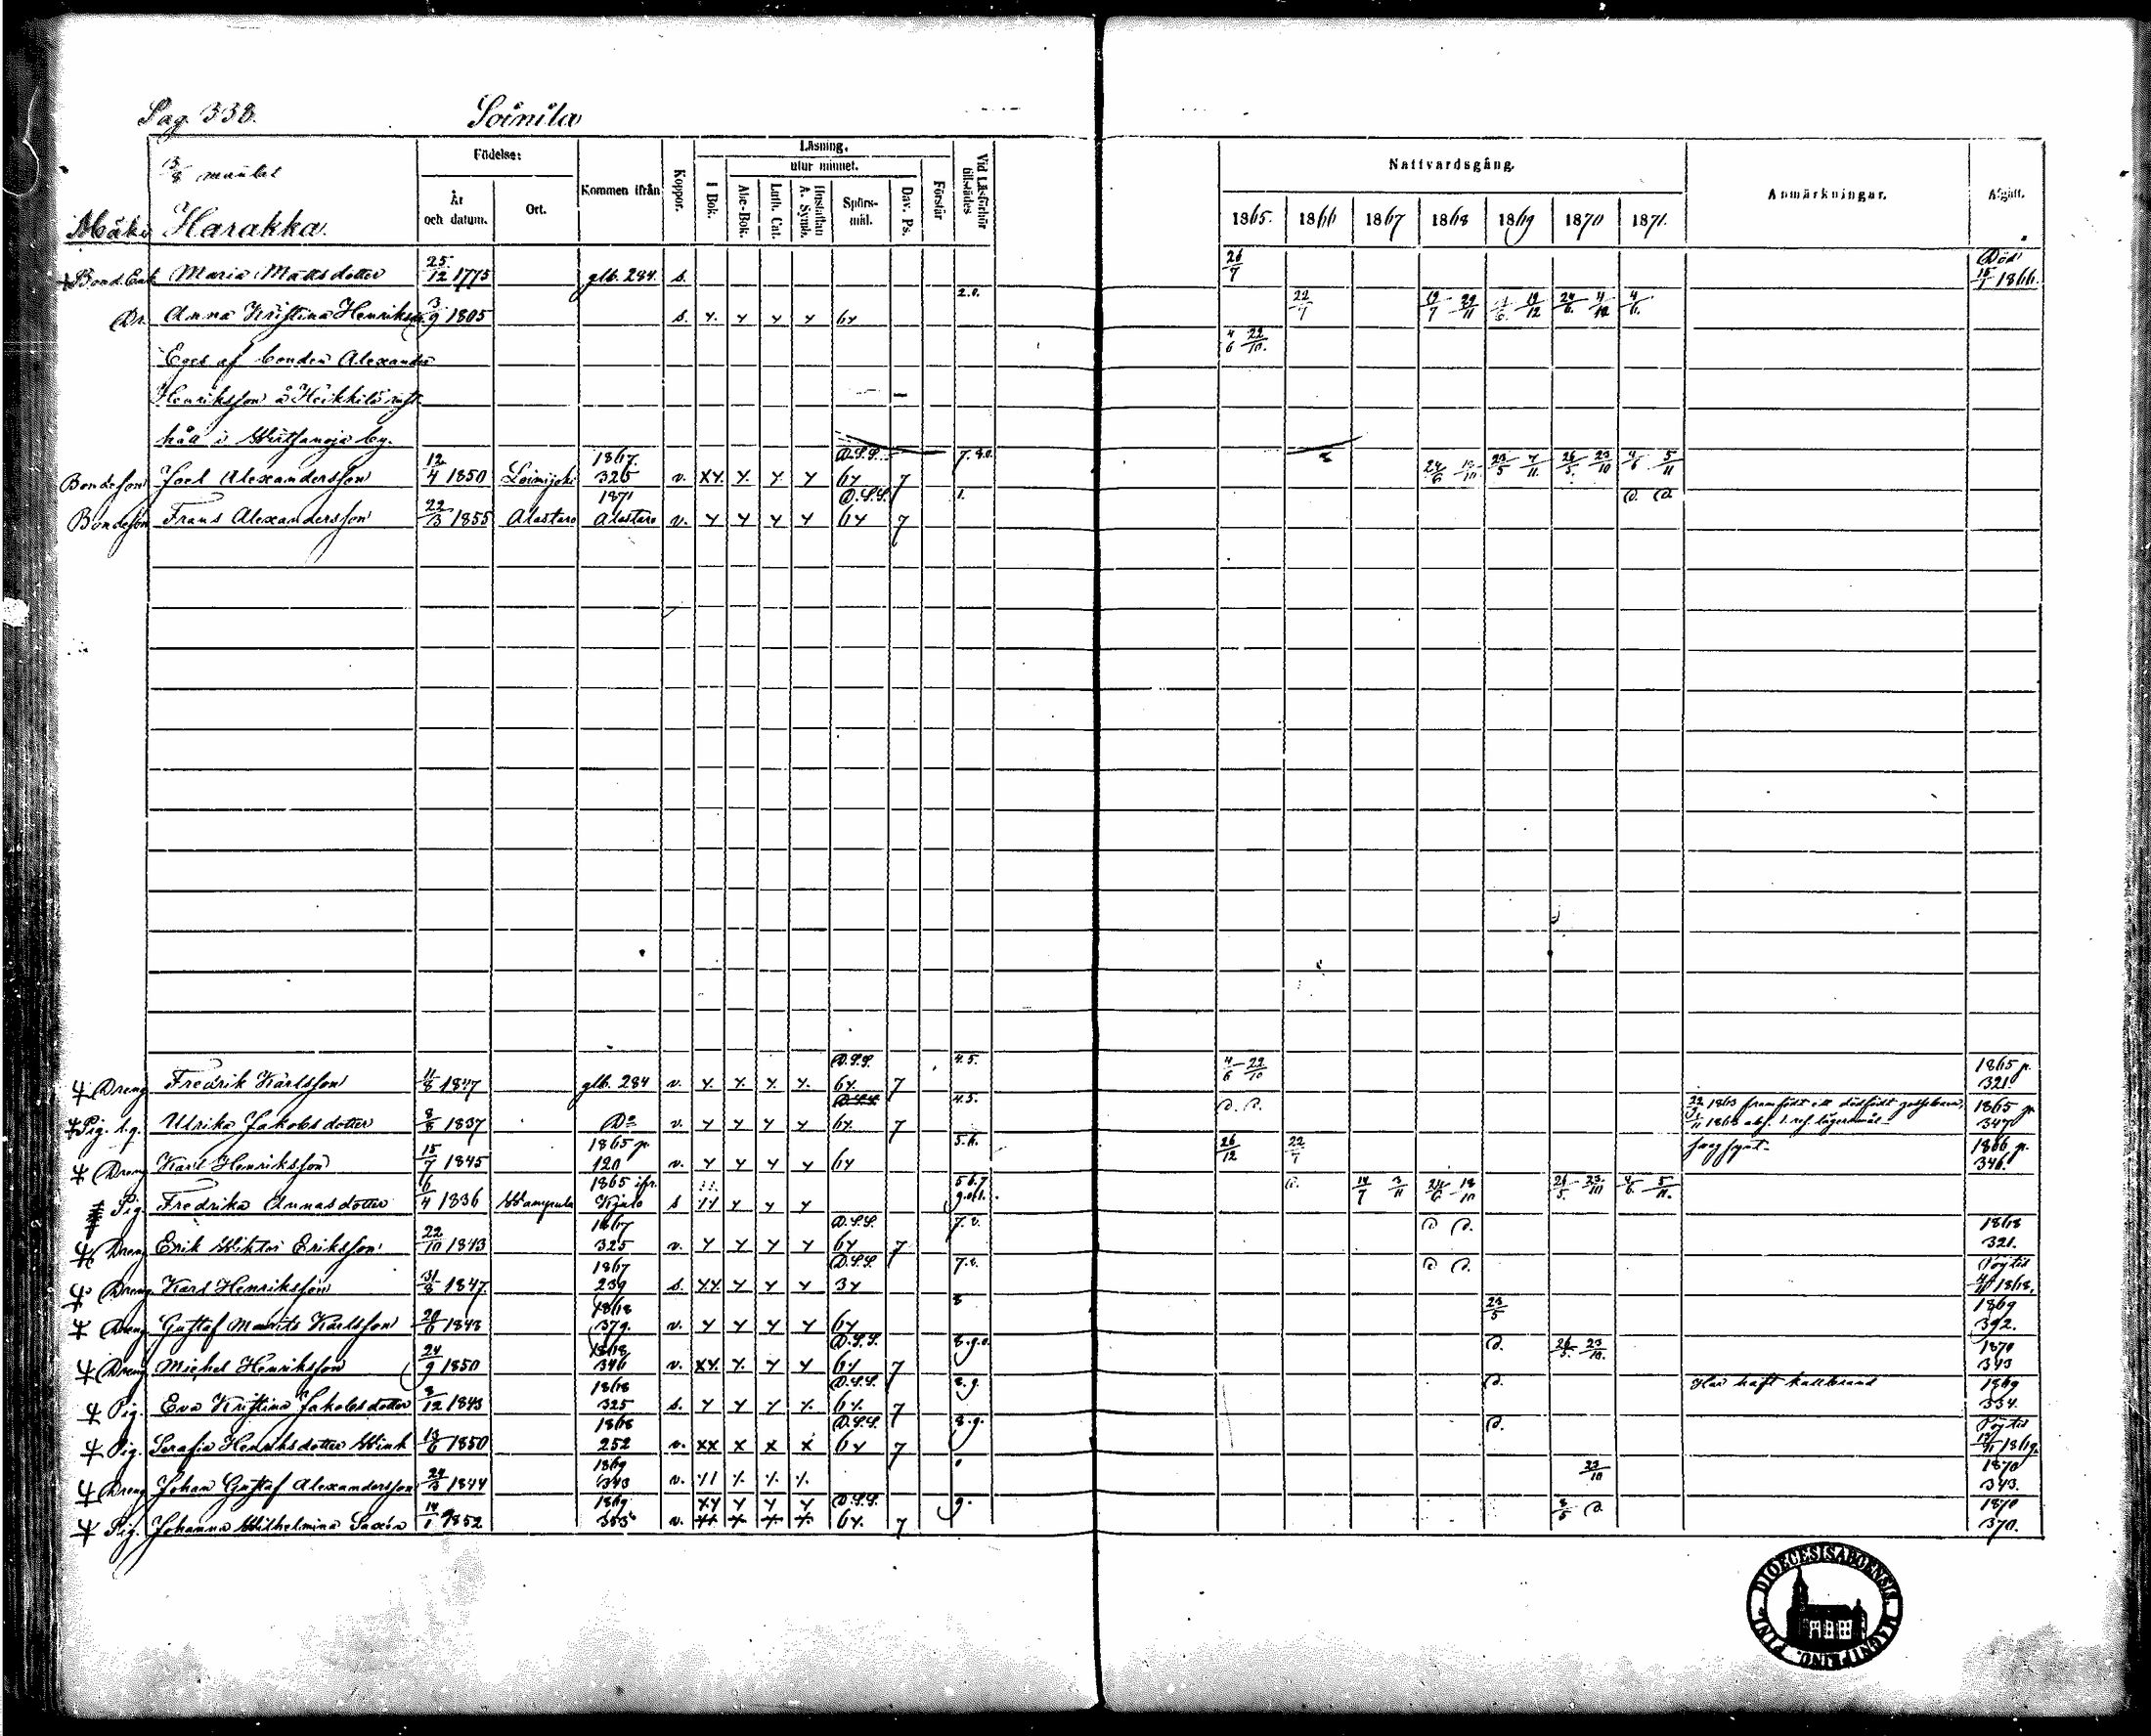 Pag. 338. Soinila
3/8 mantal
Mäki Harakka.
Födelse:
År och datum.
Ort.
Kommen ifrån
Koppor.
Läsning.
I Bok.
utur minnet.
Abc-Bok.
Luth. Cat.
Hustaflan A. Symb.
Spörs-mål.
Dav. Ps.
Förstår
Vid Läsförhör tillstädes
Nattvardsgång.
1865. 1866 1867 1868 1869 1870 1871.
Anmärkningar.
Afgått.
Bond. Enk. Maria Mattsdotter 25/12 1775 glb. 284. s. 26/7 Död 15/1 1866.
Do. Anna Kristina Henriksd. 3/9 1805 s. y. y y y 6y 2.0. 22/7 19/7 29/11 19/12 24/6 4/12 4/6.
Eges af bonden Alexander 4/6 22/10.
Henriksson å Heikkilä rust-
håll i Wirtsanoja by.
Bondeson Joel Alexandersson 12/4 1850 Loimijoki 1867 325 v. xy. y. y y D.S.S. 6y 7 7.8.0. 24/6 18/10 23/5 7/11 26/5. 23/10 4/6 5/11
Bondeson Frans Alexandersson 22/3 1855 Alastaro 1871 Alastaro v. y y y y D.S.S. 6y 7 1. D. D.
Dreng Fredrik Karlsson 11/8 1847 glb. 284 v. y. y. y. y. D.S.S. 6y. 7 4.5. 4/6 22/10 1865 p. 321.
Pig. Ulrika Jakobsdotter 8/8 1837 Do v. y y y y 6y. 7 4.5. D. D. 1865 p. 347
Dreng Karl Henriksson 15/7 1845 1865 p. 120 v. y y y y 6y 5.6. 26/12 22/7 Svagsynt. 1866 p. 346.
Pig. Fredrika Annasdotter 6/4 1836 Wampula 1865 ifr. Kjulo s yy y y y 5 6.7 9.0.1. D. 14/7 3/11 24/6 18/10 26/5. 23/10 4/6. 5/11.
Dreng Erik Wiktor Eriksson 22/10 1843 1867 325 v. y y y y D.S.S. 6y 7 7. D D. 1868 321.
Dreng Karl Henriksson 31/8 1847. 1867 239 s. xy. y y y D.S.S 3y 7. D D. Pöytis 1868.
Dreng Gustaf Maurits Karlsson 1843 1868 379. v. y y y y 6y 8 23/5 1869 392.
Dreng Michel Henriksson 24/9 1850 1868 346 v. xy. y. y y D.S.S. 6y 7 8.9.0. D. 26/5. 23/10. 1870 343
Pig. Eva Kristina Jakobsdotter 8/12 1843 1868 325 s. y y y y. D.S.S. 6y. 7 8.9. D. Har haft kallbrand 1869 334.
Pig. Serafia Henriksdotter Wink 13/6 1850 1868 252 v. xx x x x D.S.S 6y 7 8.9. D. Pöytis 1869.
Dreng Johan Gustaf Alexandersson 24/3 1844 1869 343 v. 0 23/10 1870 343.
Pig. Johanna Wilhelmina Saxén 14/1 1852 1869 v. xy y y y D.S.S. 6y. 7 9. 8/5 D. 1870 370.
DIOECESIS ABOENSIS